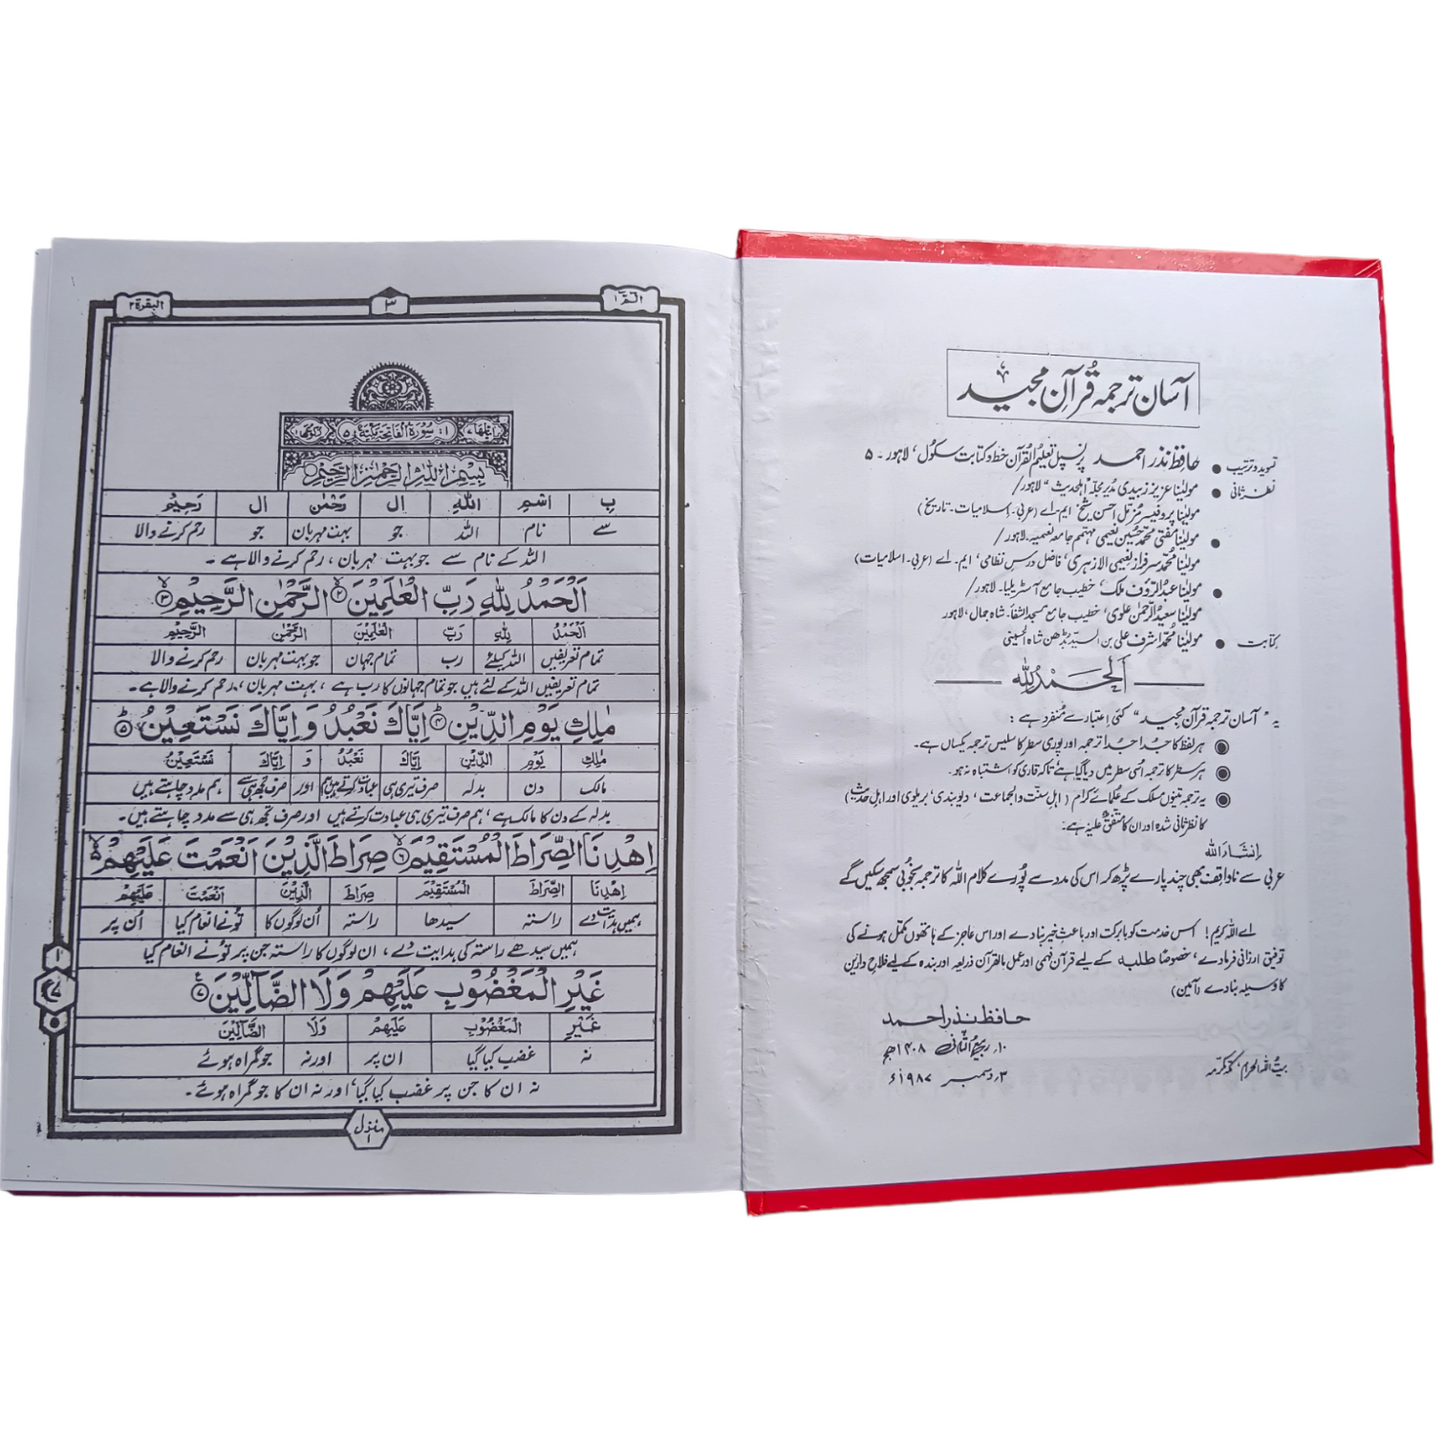 آسان ترجمہ قُرآنِ مجید
تسوید و ترتیب ● حافظ نذر احمد پرنسپل تعلیمُ القرآن خط و کتابت سکول، لاہور ۔ ۵
نظرِ ثانی ● مولٰینا عزیز زبیدی مدیر مجلّہ "اہلحدیث" لاہور /
مولٰینا پروفیسر مزمّل احسن شیخ ایم ۔ اے (عربی ۔ اسلامیات ۔ تاریخ)
● مولٰینا مُفتی محمّد حُسین نعیمی مہتمم جامعہ نعیمیہ ۔ لاہور /
مولٰینا مُحمّد سرفراز نعیمی الازہری، فاضل درس نظامی، ایم ۔ اے (عربی ۔ اسلامیات)
● مولٰینا عبدُالرّؤف ملک، خطیب جامع آسٹریلیا ۔ لاہور /
مولٰینا سعیدُالرّحمٰن علوی، خطیب جامع مسجد الشفاء ۔ شاہ جمال، لاہور
کتابت ● مولٰینا مُحمّد اشرف علی بن السیّد بڈھن شاہ الحسینی
اَلحَمْدُ لِلّٰہ
یہ "آسان ترجمہ قرآن مجید" کئی اعتبار سے مُنفرد ہے :
◉ ہر لفظ کا جُدا جُدا ترجمہ اور پوری سطر کا سلیس ترجمہ یکساں ہے۔
◉ ہر سطر کا ترجمہ اُسی سطر میں دیا گیا ہے تاکہ قاری کو اشتباہ نہ ہو۔
◉ یہ ترجمہ تینوں مسلک کے عُلمائے کرام (اہلِ سنّت و الجماعت، دیوبندی، بریلوی اور اہلِ حدیث)
کا نظرِ ثانی شدہ اور ان کا متفق علیہ ہے۔
اِنشاءَ اللّٰہ
عربی سے ناواقف بھی چند پارے پڑھ کر اس کی مدد سے پُورے کلامُ اللّٰہ کا ترجمہ بخُوبی سمجھ سکیں گے
اے اللّٰہ کریم! اس خدمت کو بابرکت اور باعثِ خیر بنا دے اور اس عاجز کے ہاتھوں مکمّل ہونے کی
توفیق ارزانی فرما دے، خصُوصًا طلبہ کے لیے قرآن فہمی اور عمل بالقرآن ذریعہ اور بندہ کے لیے فلاحِ دارین
کا وسیلہ بنا دے (آمین)
حافظ نذر احمد
۱۰؍ ربیع الثانی ۱۴۰۸ھ
بیتُ اللّٰہ الحرام، مکّہ مکرّمہ ۳؍ دسمبر ۱۹۸۷ء
الٓمّٓ ۱ ۳ البقرۃ ۲
اٰیاتها ۷ ۱: سُوْرَۃُ الْفَاتِحَۃِ مَکِّیَّۃٌ ۵ رکوعها ۱
بِسْمِ اللّٰهِ الرَّحْمٰنِ الرَّحِیْمِ
بِ اسْمِ اللّٰهِ ال رَحْمٰنِ ال رَحِیْمِ
سے نام اللّٰہ جو بہت مہربان جو رحم کرنے والا
اللّٰہ کے نام سے جو بہت مہربان، رحم کرنے والا ہے ۔
اَلْحَمْدُ لِلّٰهِ رَبِّ الْعٰلَمِیْنَ ۙ۲ الرَّحْمٰنِ الرَّحِیْمِ ۙ۳
اَلْحَمْدُ لِلّٰهِ رَبِّ الْعٰلَمِیْنَ الرَّحْمٰنِ الرَّحِیْمِ
تمام تعریفیں اللّٰہ کیلئے رب تمام جہان جو بہت مہربان رحم کرنے والا
تمام تعریفیں اللّٰہ کے لئے ہیں جو تمام جہانوں کا رب ہے، بہت مہربان، رحم کرنے والا ہے ۔
مٰلِكِ یَوْمِ الدِّیْنِ ؕ۴ اِیَّاكَ نَعْبُدُ وَ اِیَّاكَ نَسْتَعِیْنُ ؕ۵
مٰلِكِ یَوْمِ الدِّیْنِ اِیَّاكَ نَعْبُدُ وَ اِیَّاكَ نَسْتَعِیْنُ
مالک دن بدلہ صرف تیری ہی عبادت کرتے ہیں ہم اور صرف تجھ ہی سے ہم مدد چاہتے ہیں
بدلہ کے دن کا مالک ہے، ہم صرف تیری ہی عبادت کرتے ہیں اور صرف تجھ ہی سے مدد چاہتے ہیں۔
اِهْدِنَا الصِّرَاطَ الْمُسْتَقِیْمَ ۙ۶ صِرَاطَ الَّذِیْنَ اَنْعَمْتَ عَلَیْهِمْ ۙ۵
اِهْدِنَا الصِّرَاطَ الْمُسْتَقِیْمَ صِرَاطَ الَّذِیْنَ اَنْعَمْتَ عَلَیْهِمْ
ہمیں ہدایت دے راستہ سیدھا راستہ اُن لوگوں کا تُو نے انعام کیا اُن پر
ہمیں سیدھے راستہ کی ہدایت دے، ان لوگوں کا راستہ جن پر تُو نے انعام کیا
غَیْرِ الْمَغْضُوْبِ عَلَیْهِمْ وَلَا الضَّآلِّیْنَ ۧ۷
غَیْرِ الْمَغْضُوْبِ عَلَیْهِمْ وَلَا الضَّآلِّیْنَ
نہ غضب کیا گیا ان پر اور نہ جو گمراہ ہوئے
نہ ان کا جن پر غضب کیا گیا، اور نہ ان کا جو گمراہ ہوئے ۔
منزل ۱